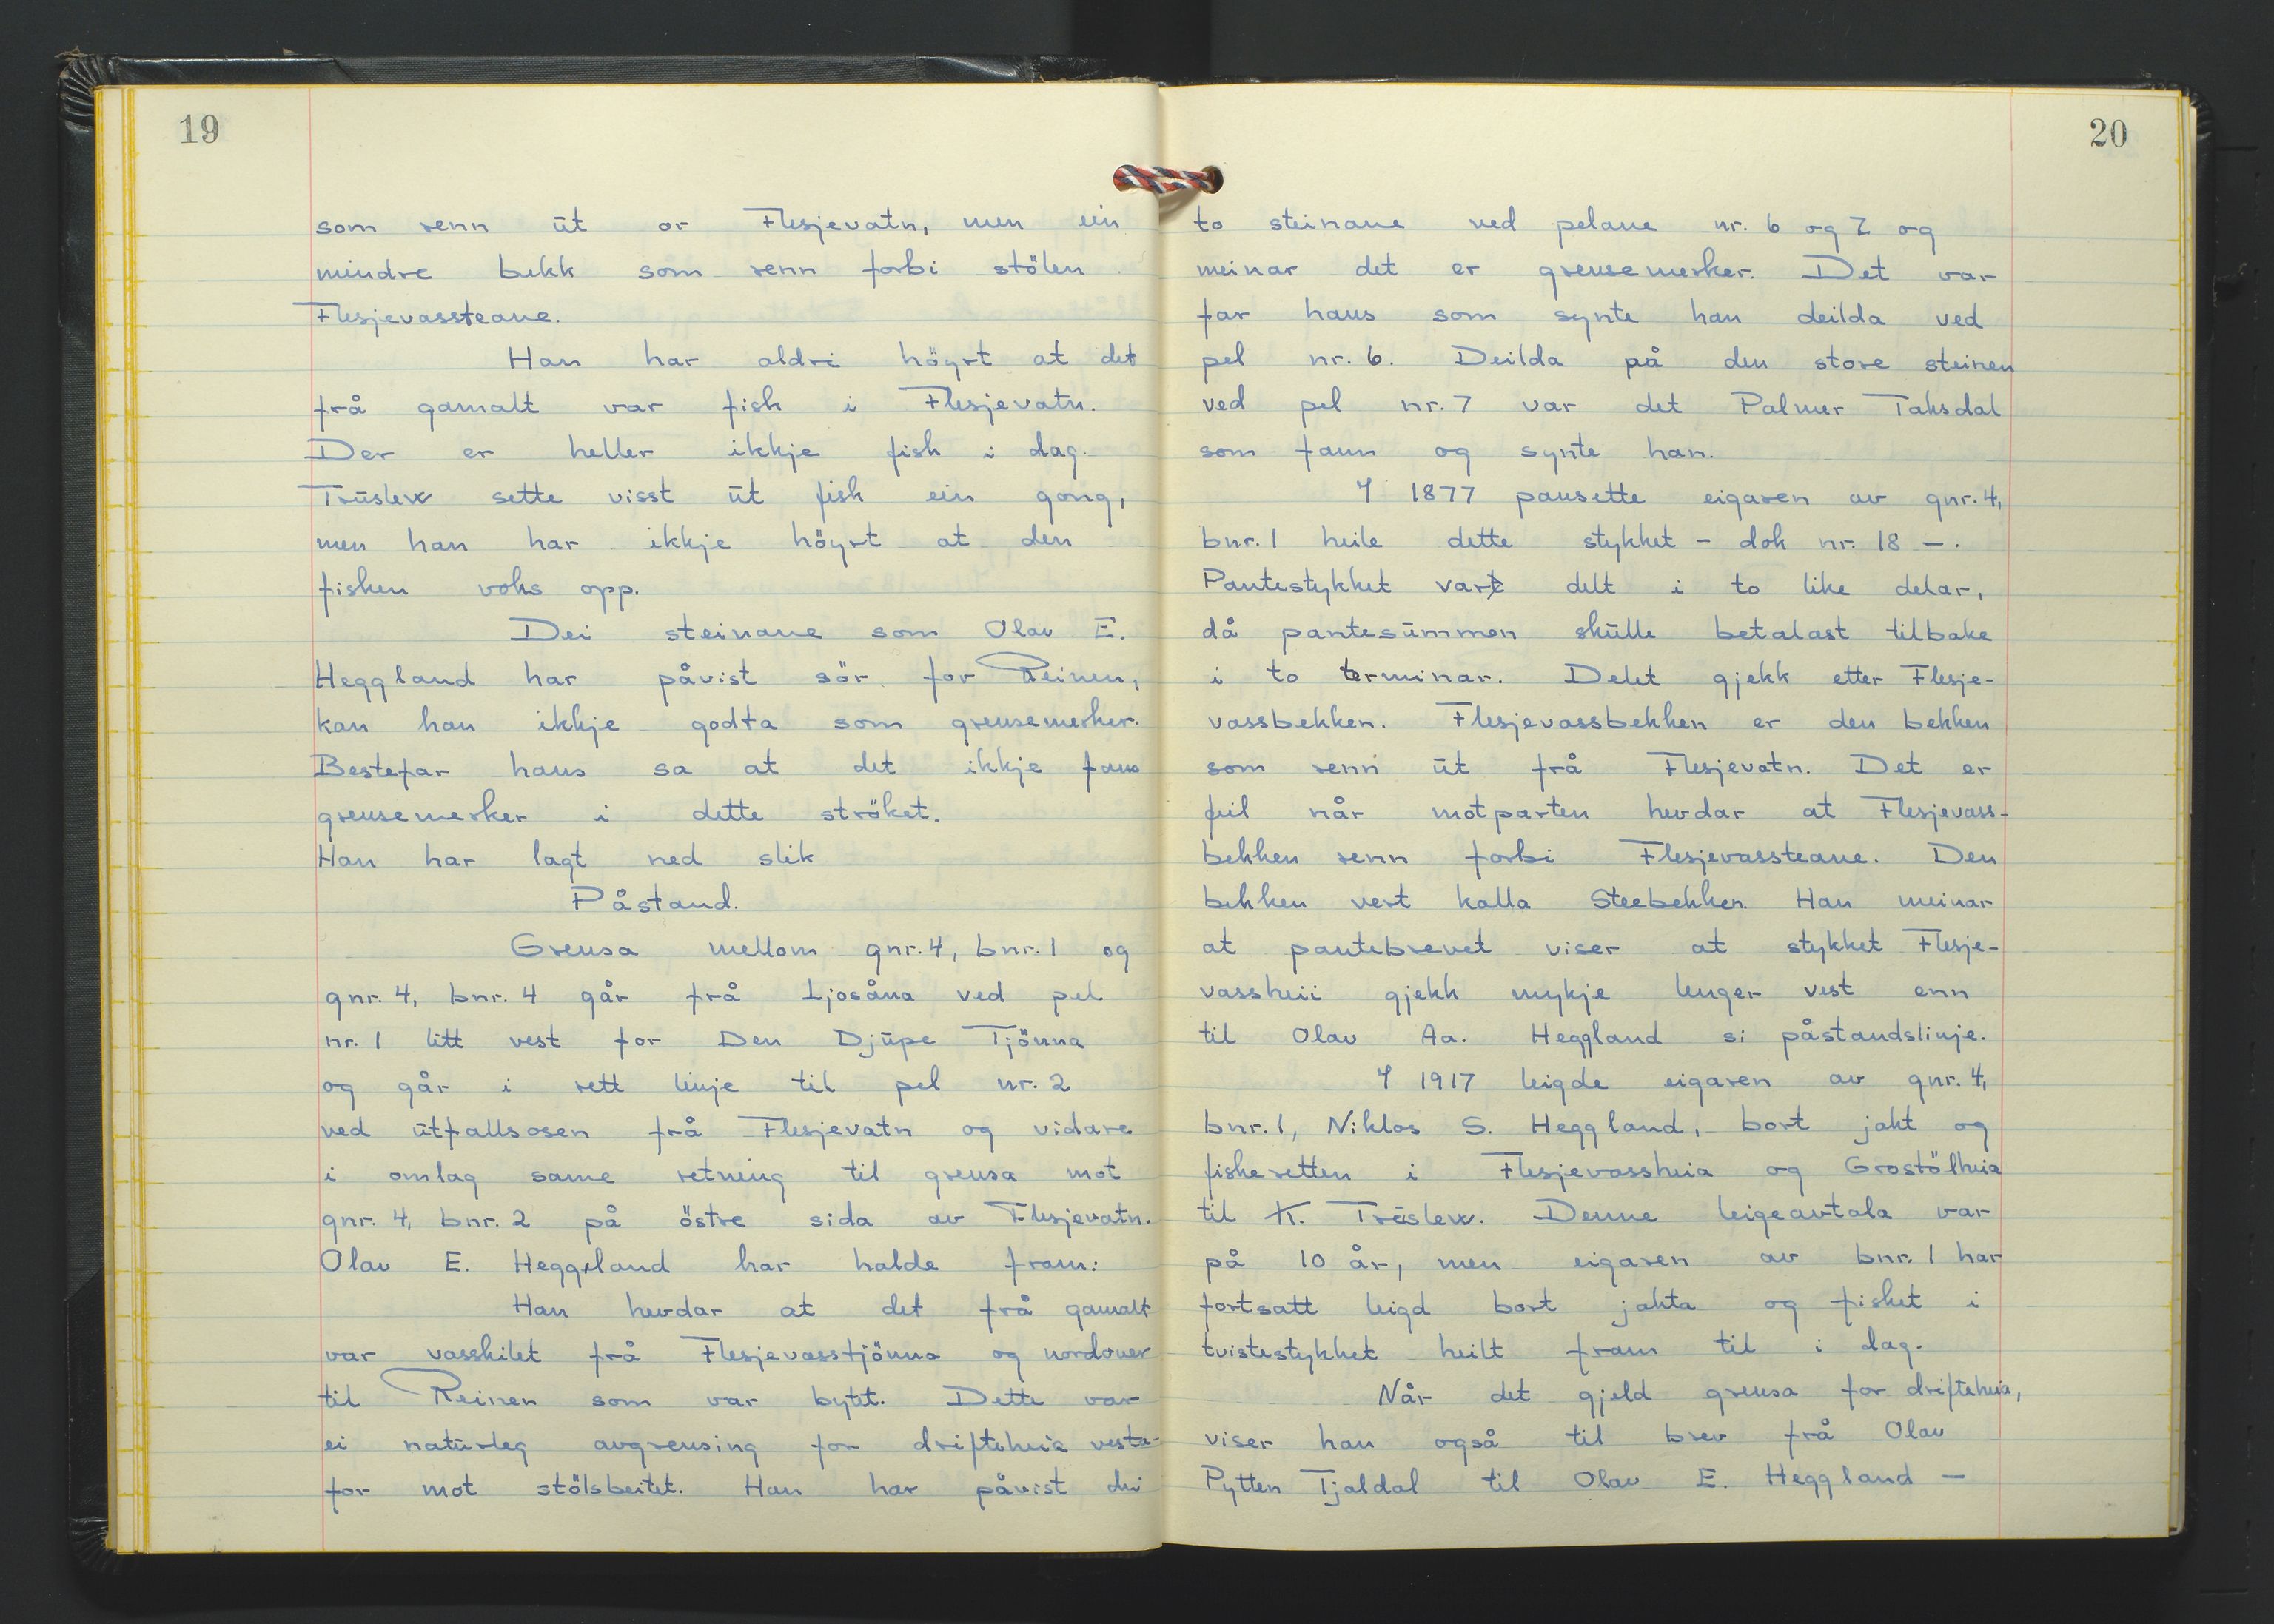 19
som renn út or Flesjevatn, men ein
mindre bekk som renn forbi stölen
Flesjevassteane.
Han har aldri höyrt at det
frå gamalt var fisk i Flesjevatn.
Der er heller ikkje fisk i dag.
Trúslew sette visst út fisk ein gong,
men han har ikkje höyrt at den
fisken voks opp.
Dei steinane som Olav E.
Heggland har påvist sör for Reinen,
kan han ikkje godta som grensemerker.
Bestefar hans sa at det ikkje fans
grensemerker i dette ströket.
Han har lagt ned slik
Påstand.
Grensa mellom gnr. 4, bnr. 1 og
gnr. 4, bnr. 4 går frå Ljosåna ved pel
nr. 1 litt vest for Den Djúpe Tjönna
og går i rett linje til pel nr. 2
ved útfallsosen frå Flesjevatn og vidare
i omlag same retning til grensa mot
gnr. 4, bnr. 2 på östre sida av Flesjevatn.
Olav E. Heggland har halde fram:
Han hevdar at det frå gamalt
var vasskilet frå Flesjevasstjönna og nordover
til Reinen som var bytet. Dette var
ei natúrleg avgrensing for drifteheia vesta-
for mot stölsbeitet. Han har påvist dei
20
to steinane ved pelane nr. 6 og 7 og
meinar det er grensemerker. Det var
far hans som synte han deilda ved
pel nr. 6. Deilda på den store steinen
ved pel nr. 7 var det Palmer Taksdal
som fann og synte han.
I 1877 pansette eigaren av gnr. 4,
bnr. 1 heile dette stykket – dok nr. 18 –.
Pantestykket vart delt i to like delar,
då pantesúmmen skúlle betalast tilbake
i to terminar. Delet gjekk etter Flesje-
vassbekken. Flesjevassbekken er den bekken
som renn út frå Flesjevatn. Det er
feil når motparten hevdar at Flesjevass-
bekken renn forbi Flesjevassteane. Den
bekken vert kalla Steebekken. Han meinar
at pantebrevet viser at stykket Flesje-
vassheii gjekk mykje lenger vest enn
til Olav Aa. Heggland si påstandslinje.
I 1917 leigde eigaren av gnr. 4,
bnr. 1, Niklos S. Heggland, bort jakt og
fiskeretten i Flesjevassheia og Grostölheia
til K. Trúslew. Denne leigeavtala var
på 10 år, men eigaren av bnr. 1 har
fortsatt leigd bort jakta og fisket i
tvistestykket heilt fram til i dag.
Når det gjeld grensa for drifteheia,
viser han også til brev frå Olav
Pytten Tjaldal til Olav E. Heggland –